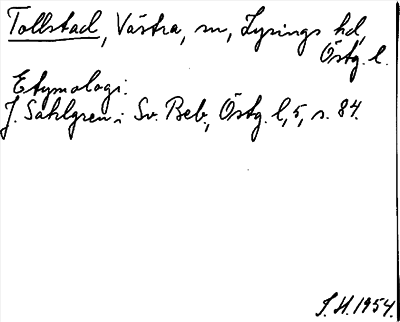 Tollstad, Västra, sn, Lysings hd,
Östg. l.
Etymologi:
J. Sahlgren i Sv. Beb., Östg. l, 5, s. 84.
S. H. 1954.